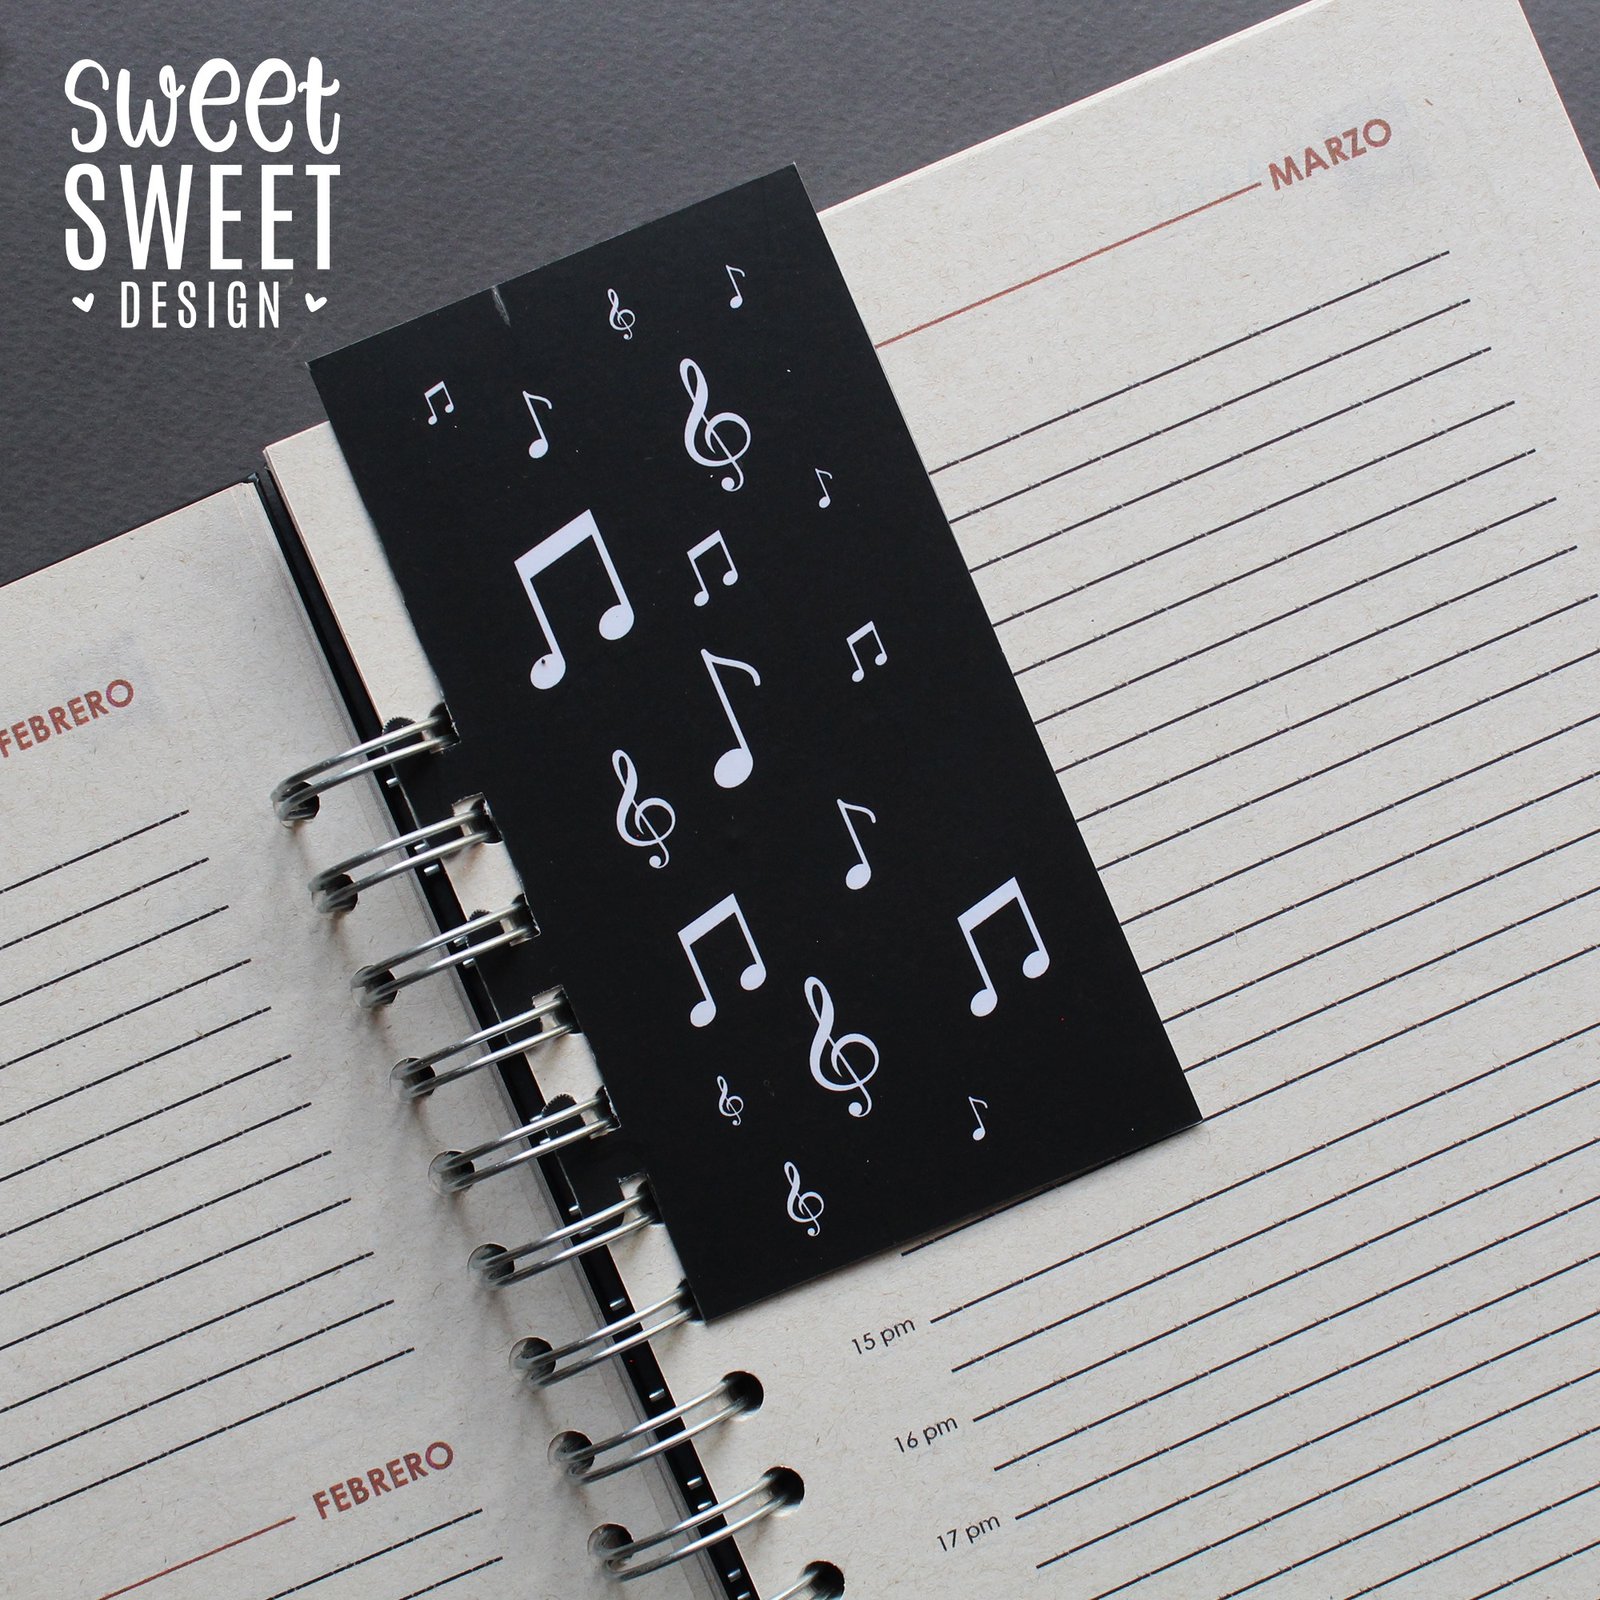 sweet
SWEET
DESIGN
MARZO
FEBRERO
15 pm
16 pm
17 pm
FEBRERO